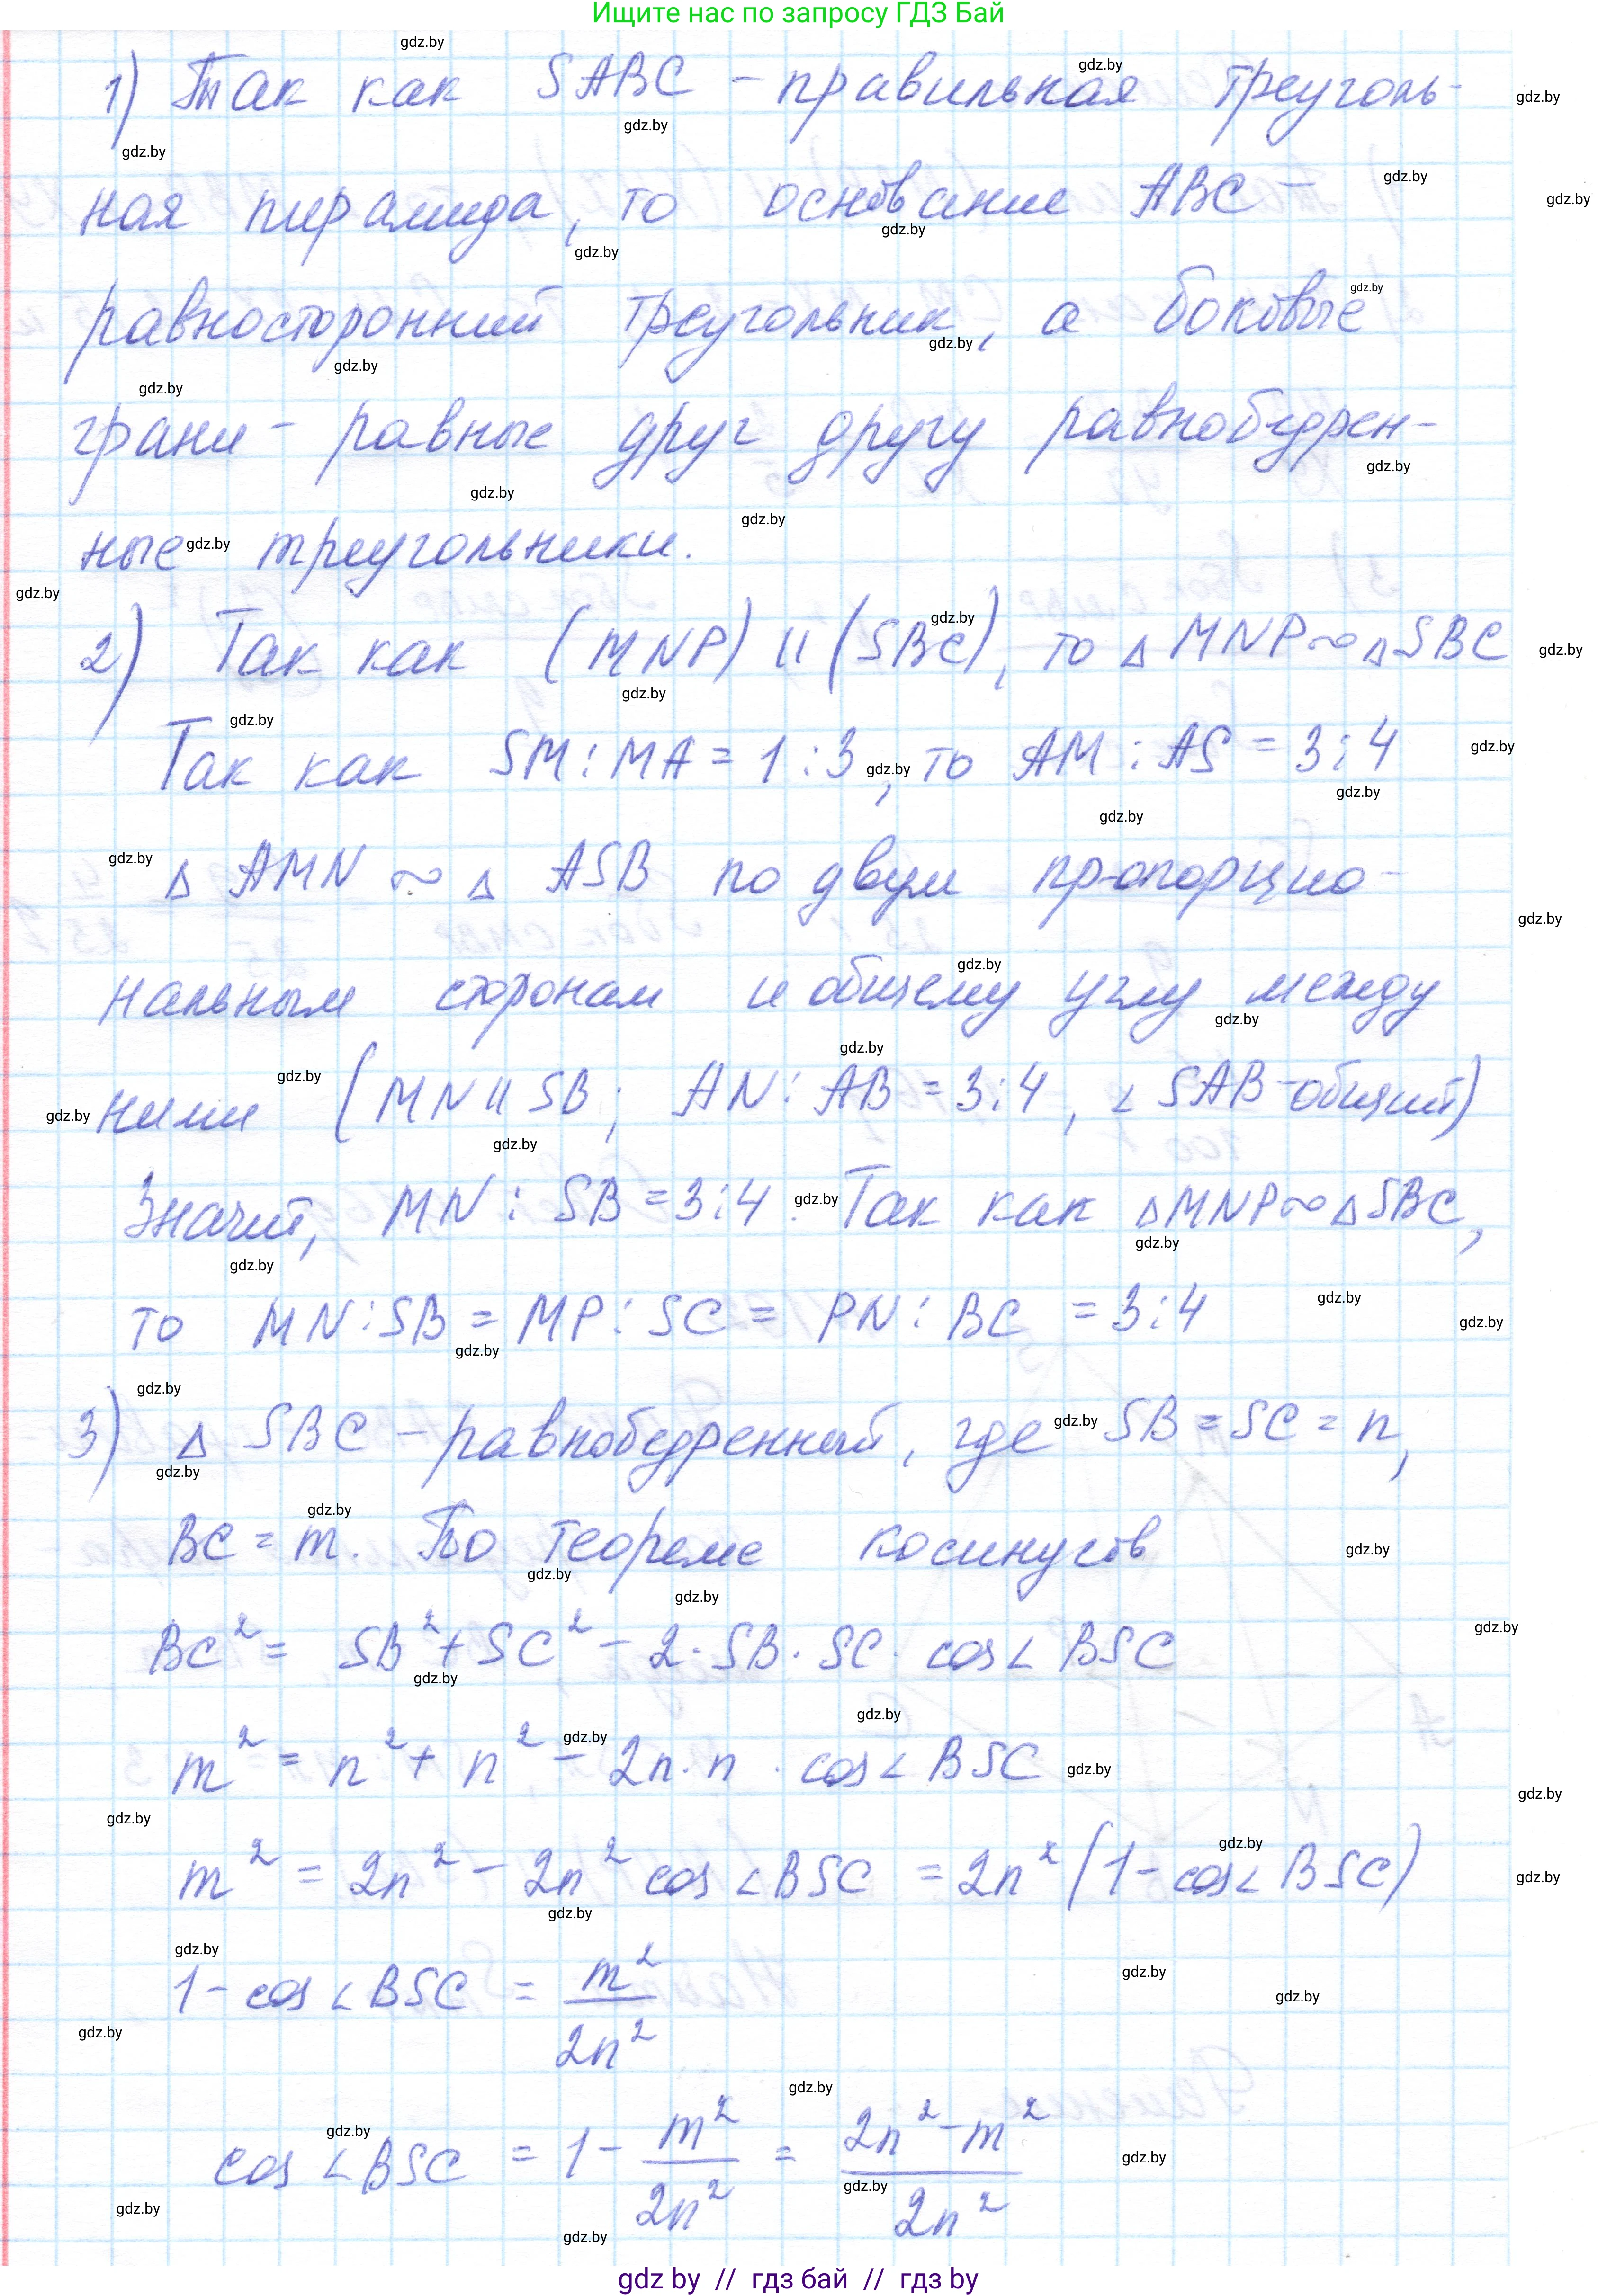 Ищите нас по запросу ГДЗ Бай
gdz.by
1) Так как SABC – правильная треуголь-
ная пирамида, то основание ABC –
равносторонний треугольник, а боковые
грани – равные друг другу равнобедрен-
ные треугольники.
2) Так как (MNP) || (SBC), то △MNP ~ △SBC
Так как SM : MA = 1 : 3, то AM : AS = 3 : 4
△ AMN ~ △ ASB по двум пропорцио-
нальным сторонам и общему углу между
ними (MN || SB; AN : AB = 3 : 4, ∠ SAB – общий)
Значит, MN : SB = 3 : 4. Так как △MNP ~ △SBC,
то MN : SB = MP : SC = PN : BC = 3 : 4
3) △ SBC – равнобедренный, где SB = SC = n,
BC = m. По теореме косинусов
BC² = SB² + SC² – 2 · SB · SC · cos ∠ BSC
m² = n² + n² – 2n · n · cos ∠ BSC
m² = 2n² – 2n² cos ∠ BSC = 2n² (1 – cos ∠ BSC)
1 – cos ∠ BSC = m² / 2n²
cos ∠ BSC = 1 – m² / 2n² = 2n² – m² / 2n²
gdz by // гдз бай // гдз by